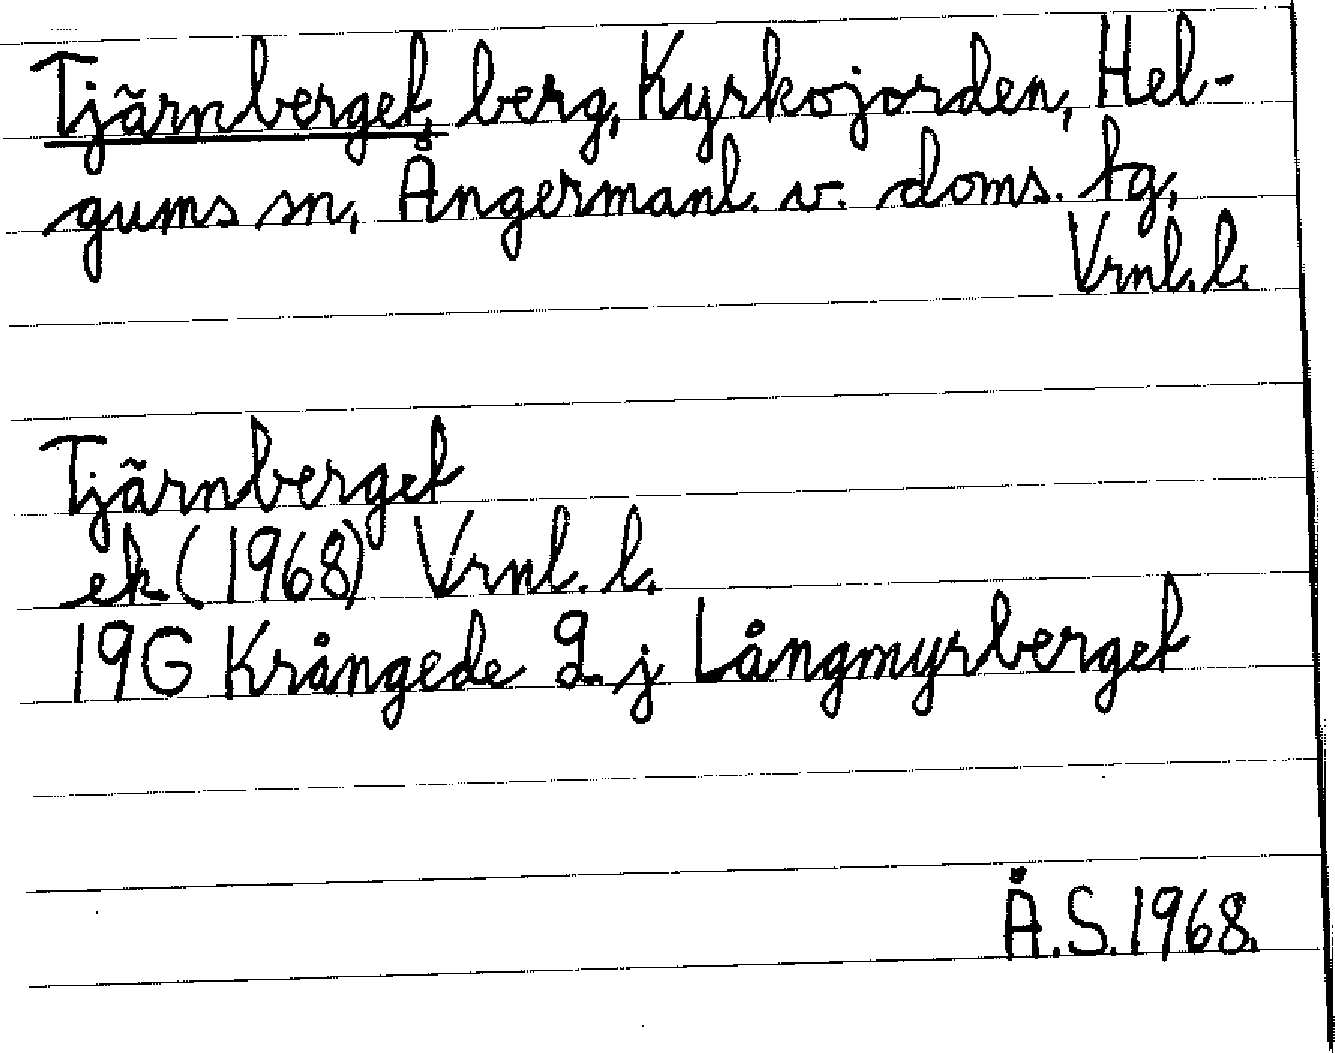 Tjärnberget, berg, Kyrkojorden, Hel-
gums sn, Ångermanl. v. doms. tg,
Vrnl. l.
Tjärnberget
ek (1968) Vrnl. l.
19G Krångede 9 j Långmyrberget
Å.S. 1968.